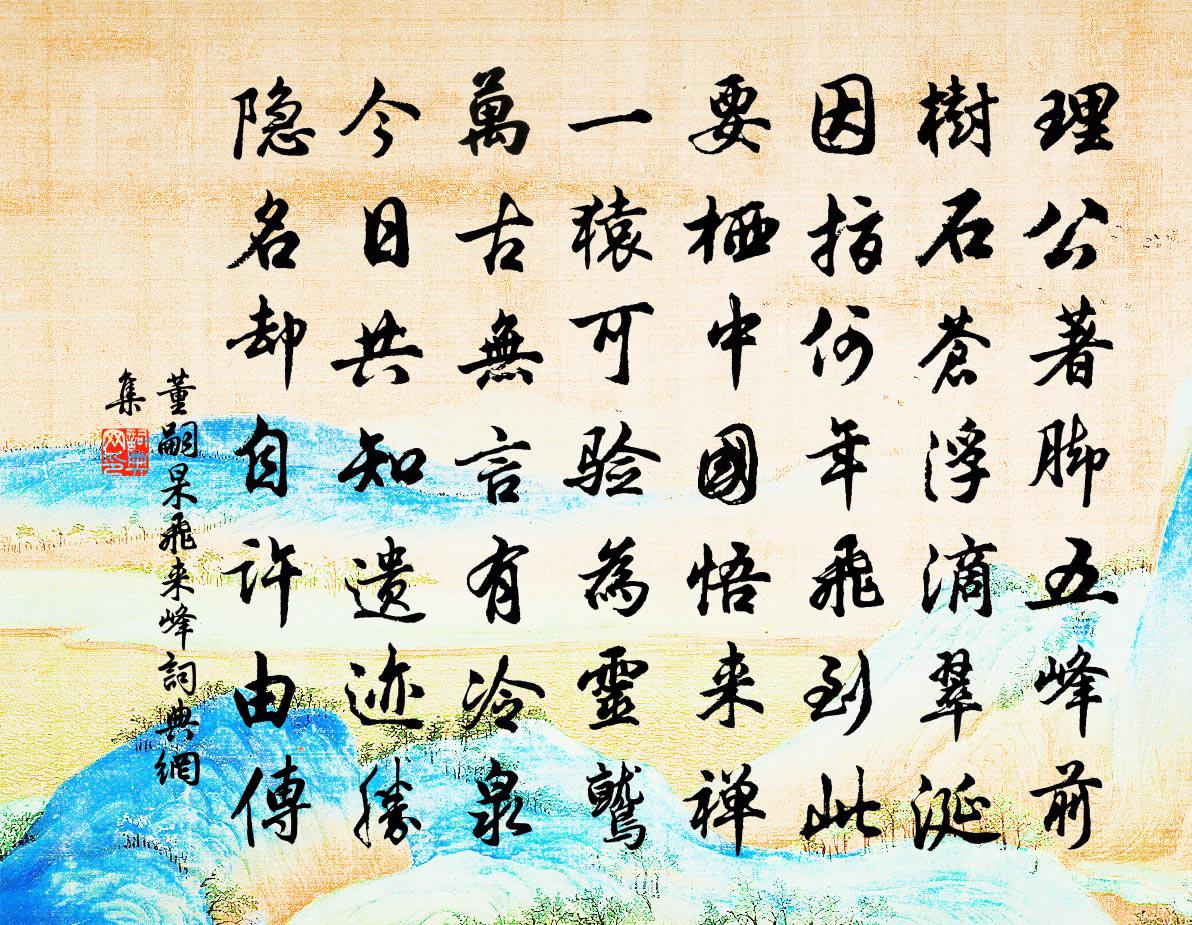 理公著脚五峰前
樹石蒼浮滴翠涎
因指何年飛到此
要栖中國悟来禅
一猿可验為靈鷲
萬古無言有冷泉
今日共知遗迹勝
隐名却自许由傳
董嗣杲飛来峰詞典網
集